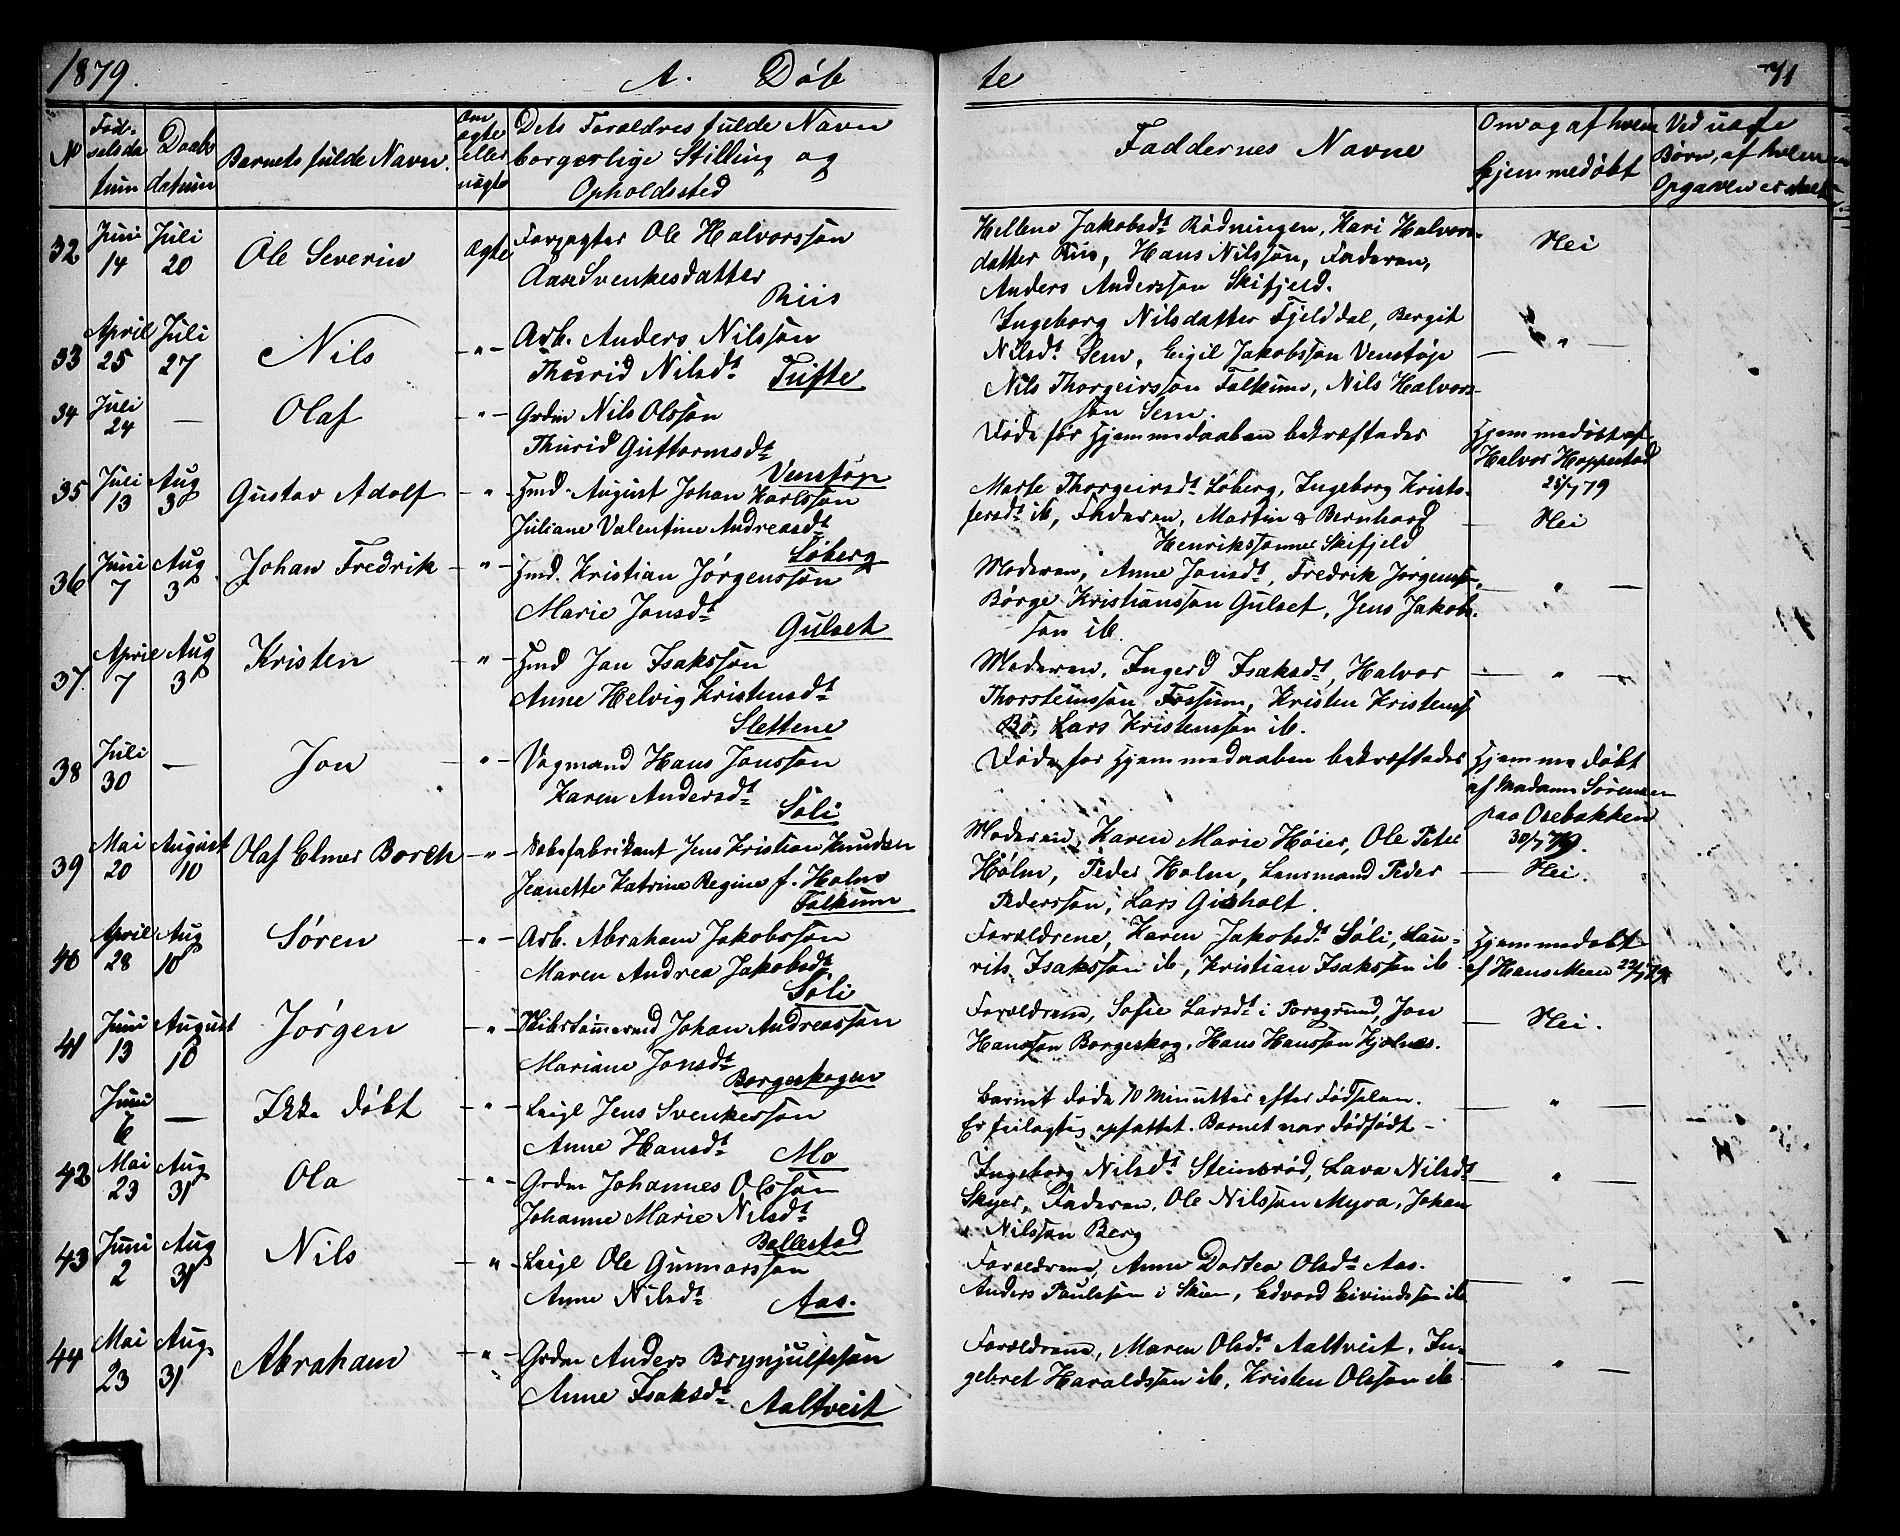 1879. A. Döb te 71
No
Fød-
selsda
tum
Daabs
datum
Barnets fulde Navn.
Om
ægte
eller
uægte
Dets Forældres fulde Navn
borgerlige Stilling og
Opholdssted
Faddernes Navne
Om og af hvem
hjemmedøbt
Ved uægte
Børn, af hvem
Opgaven er
32 Juni 14 Juli 20 Ole Severin ægte Forpagter Ole Halvorssøn
Aase Svenkesdatter
Riis
Hellene Jakobsdt Rødningen, Kari Halvors-
datter Riis, Hans Nilssøn, Faderen,
Anders Anderssøn Skifjeld.
Nei
33 April 25 Juli 27 Nils - " - Arb. Anders Nilssøn
Thurid Nilsdt Tufte
Ingeborg Nilsdatter Fjelddal, Bergit
Nilsdt Sem, Eigil Jakobssøn Venstøp
Nils Thorgeirssøn Falkum, Nils Halvors-
søn Sem.
— " —
34 Juli 24 — Olaf - " - Grdm Nils Olssøn
Thurid Guttormsdt
Venstøp
Døde før Hjemmedaaben bekræftedes
Hjemmedøbt af
Halvor Hoppestad
25/7 79
35 Juli 13 Aug 3 Gustav Adolf - " - Hmd. August Johan Karlssøn
Juliane Valentine Andreasdt
Løberg
Marte Thorgeirsdt Løberg, Ingeborg Kristo-
fersdt ib, Faderen, Martin & Bernhard
Henrikssønner Skifjeld
Nei
36 Juni 7 Aug 3 Johan Fredrik - " - Hmd. Kristian Jørgenssøn
Marie Jonsdt
Gulset
Moderen, Anne Jonsdt, Fredrik Jørgenssøn,
Børge Kristianssøn Gulset, Jens Jakobs-
søn ib.
— " —
37. April 7 Aug 3 Kristen - " - Hmd Jon Isakssøn
Anne Helvig Kristensdt
Slettene
Moderen, Ingerd Isaksdt, Halvor
Thorsteinssøn Fossum, Kristen Kristenss
Bø, Lars Kristenssøn ib.
— " —
38 Juli 30 — Jon - " - Vogmand Hans Jonssøn
Karen Andersdt
Søli
Døde før Hjemmedaaben bekræftedes
Hjemmedøbt
af Madame Sørensen
paa Osebakken
30/7 79.
39 Mai 20 August 10 Olaf Elmer Borch - " - Jens Kristian Knudsen
Jeanette Katrine Regine f. Holm
Falkum
Moderen, Karen Marie Høier, Ole Peter
Holm, Peder Holm, Lensmand Peder
Pederssøn, Lars Gisholt.
Nei.
40 April 28 Aug 10 Søren - " - Arb. Abraham Jakobssøn
Maren Andrea Jakobsdt.
Søli
Forældrene, Karen Jakobsdt Søli, Lau-
rits Isakssøn ib, Kristian Isakssøn ib
Hjemmedøbt
af Hans Meen
41 Juni 13 August 10 Jørgen - " - Skibstømmermd Johan Andreassøn
Mariane Jonsdt
Borgeskogen
Forældrene, Sofie Larsdt i Porsgrund, Jon
Hanssøn Borgeskog, Hans Hanssøn Kjølnes.
Nei.
Juni 6 — Ikke døbt - " - Leigl Jens Svenkessøn
Anne Hansdt Mo
Barnet døde 10 Minutter efter Fødselen.
Er feilagtig opfattet. Barnet var dødfødt -
— " —
42 Mai 23 Aug 31 Ola - " - Grdm Johannes Olssøn
Johanne Marie Nilsdt
Bollestad
Ingeborg Nilsdt Steinsrød, Lava Nilsdt
Skyer, Faderen, Ole Nilssøn Myra, Johan
Nilssøn Berg
"
43 Juni 2 Aug 31 Nils - " - Leigl Ole Gunnarssøn
Anne Nilsdt Aas.
Forældrene, Anne Dortea Olsdt Aas.
Anders Paulssøn i Skien, Edvard Eivindssøn ib
— " —
44 Mai 23 Aug. 31 Abraham - " - Grdm Anders Brynjulfssøn
Anne Isaksdt Aaltveit
Forældrene, Maren Olsdt Aaltveit, In-
gebret Haraldssøn ib, Kristen Olssøn ib
— " —